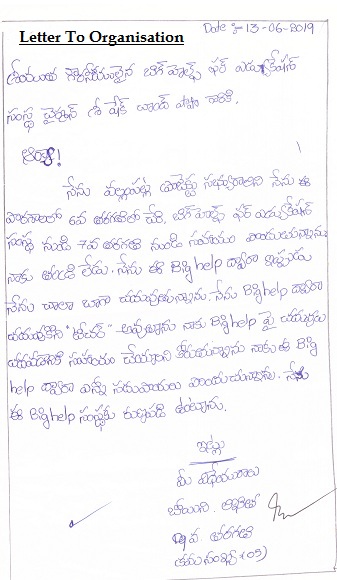 Letter To Organisation
Date :- 13-06-2019
శ్రీయుత గౌరవనీయులైన బిగ్ హెల్ప్ ఫర్ ఎడ్యుకేషన్
సంస్థ చైర్మన్ శ్రీ షేక్ చాంద్ పాషా గారికి,
ఆర్యా!
నేను సభ్యురాలిని నేను ఈ
పాఠశాలలో 6వ తరగతిలో చేరి. బిగ్ హెల్ప్ ఫర్ ఎడ్యుకేషన్
సంస్థ నుండి 7వ తరగతి నుండి సహాయం పొందుచున్నాను
నాకు తండ్రి లేడు. నేను ఈ Big help ద్వారా ఇప్పుడు
నేను చాలా బాగా చదువుతున్నాను. నేను Big help ద్వారా
చదువుకొని "టీచర్" అవుతాను నాకు Big help పై చదువులు
చదవడానికి సహాయం చేయాలని కోరుచున్నాను నాకు ఈ Big
help ద్వారా ఎన్నో సదుపాయలు పొందుచున్నాను. నేను
ఈ Big help సంస్థకు రుణపడి ఉంటాను.
ఇట్లు
మీ విధేయురాలు
10వ తరగతి
క్రమసంఖ్య (05)